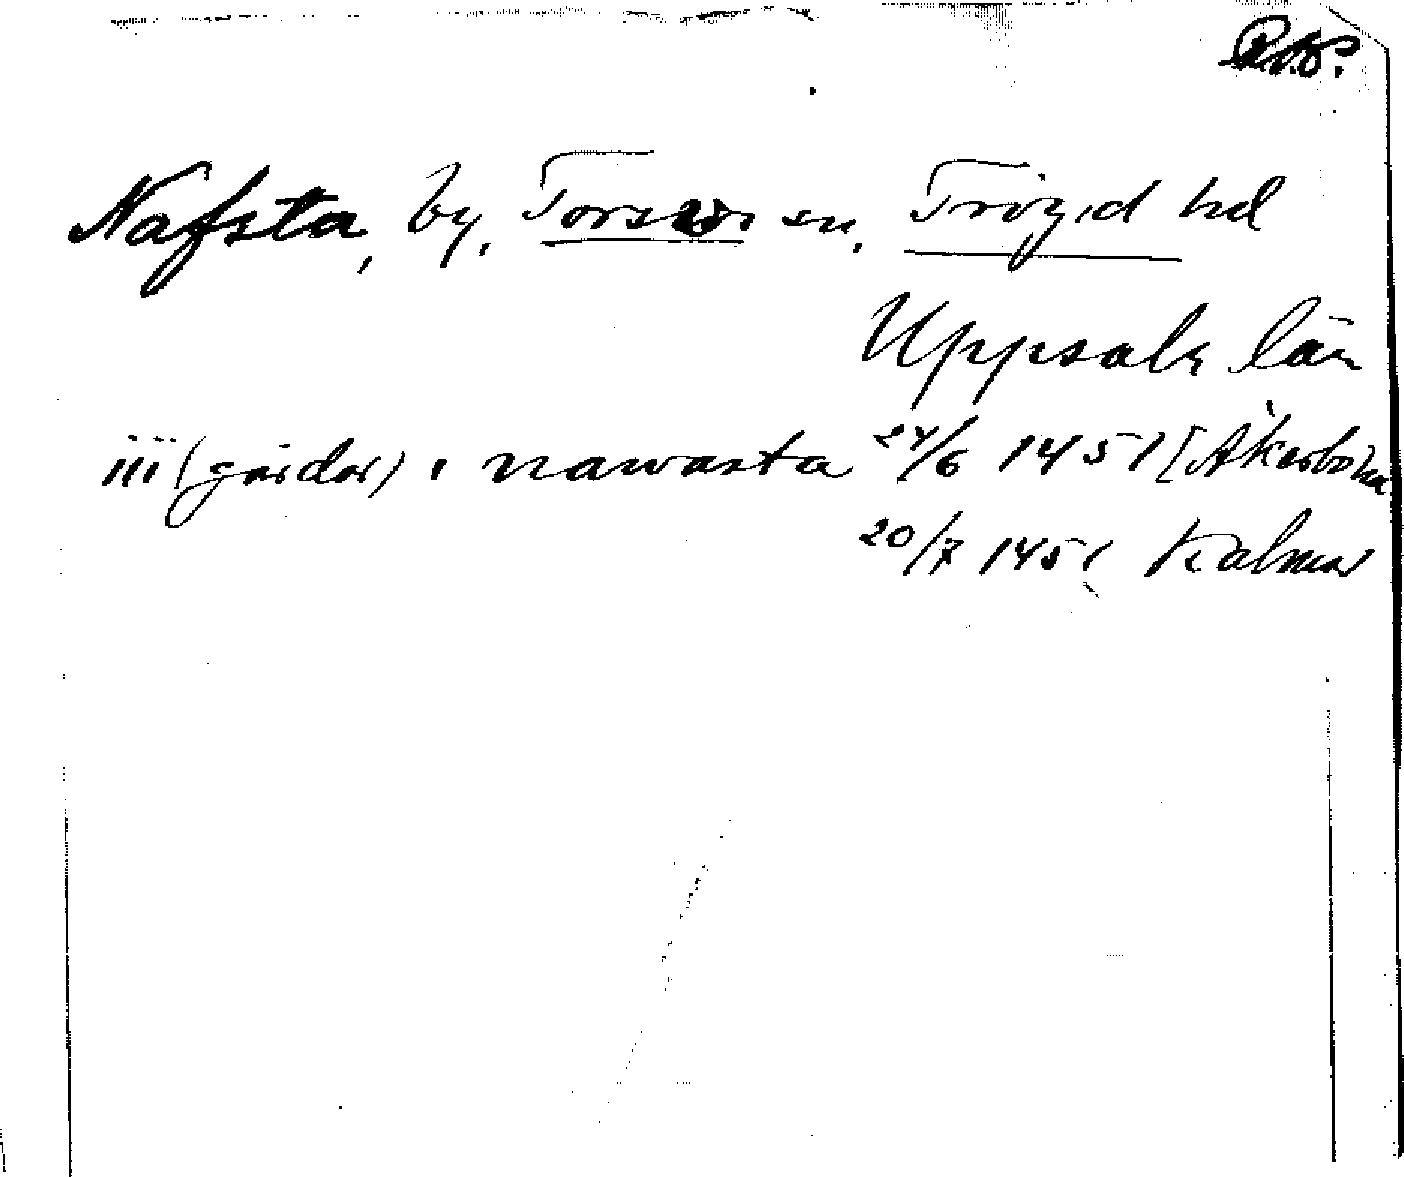 Nafsta, by, Torsvi sn, Trögd hd
Uppsala län
iii (gårdar) i nawasta 24/6 1451 [Åkerbo hd
20/7 1451 Kalmar